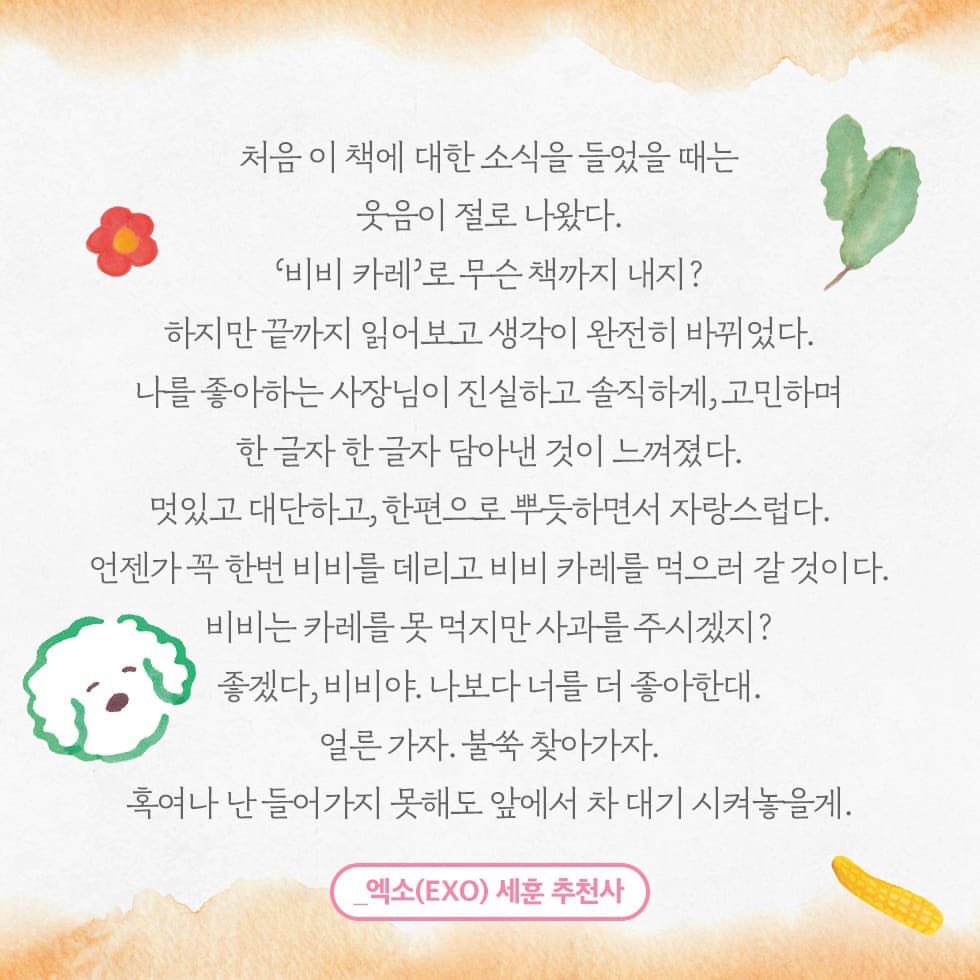 처음 이 책에 대한 소식을 들었을 때는
웃음이 절로 나왔다.
‘비비 카레’로 무슨 책까지 내지?
하지만 끝까지 읽어보고 생각이 완전히 바뀌었다.
나를 좋아하는 사장님이 진실하고 솔직하게, 고민하며
한 글자 한 글자 담아낸 것이 느껴졌다.
멋있고 대단하고, 한편으로 뿌듯하면서 자랑스럽다.
언젠가 꼭 한번 비비를 데리고 비비 카레를 먹으러 갈 것이다.
비비는 카레를 못 먹지만 사과를 주시겠지?
좋겠다, 비비야. 나보다 너를 더 좋아한대.
얼른 가자. 불쑥 찾아가자.
혹여나 난 들어가지 못해도 앞에서 차 대기 시켜놓을게.
_엑소(EXO) 세훈 추천사